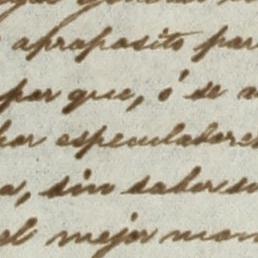 apraposito par
por que, ó se a
por especuladores
a, sin saber su
el mejor mom